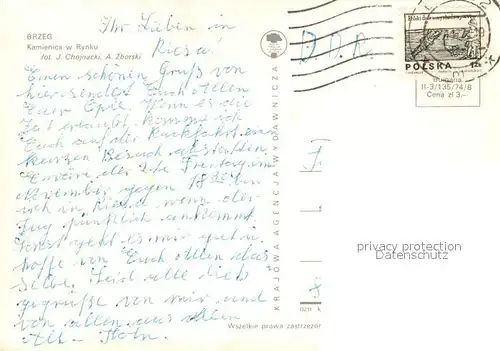 BRZEG
Kamienica w Rynku
fot. J. Chojnacki, A. Zborski
Ihr Lieben in
Riesa!
Einen schönen Gruß von
hier sendet Euch allen
Euer Opi. Wenn es die
Zeit erlaubt komme ich
Euch auf der Rückfahrt einen
kurzen Besuch abstatten
der 2te Freitag im
November gegen 18
ich in Riesa wenn der
Zug pünktlich ankommt
Sonst geht es mir gut u.
hoffe von Euch allen das
selbe. Seid alle lieb
gegrüße von mir und
von allen aus
D.D.R.
KRAJOWA AGENCJA WYDAWNICZA
POLSKA
II-3/135/74/B
Cena zł 3.—
privacy protection
Datenschutz
Wszelkie prawa zastrzeżon